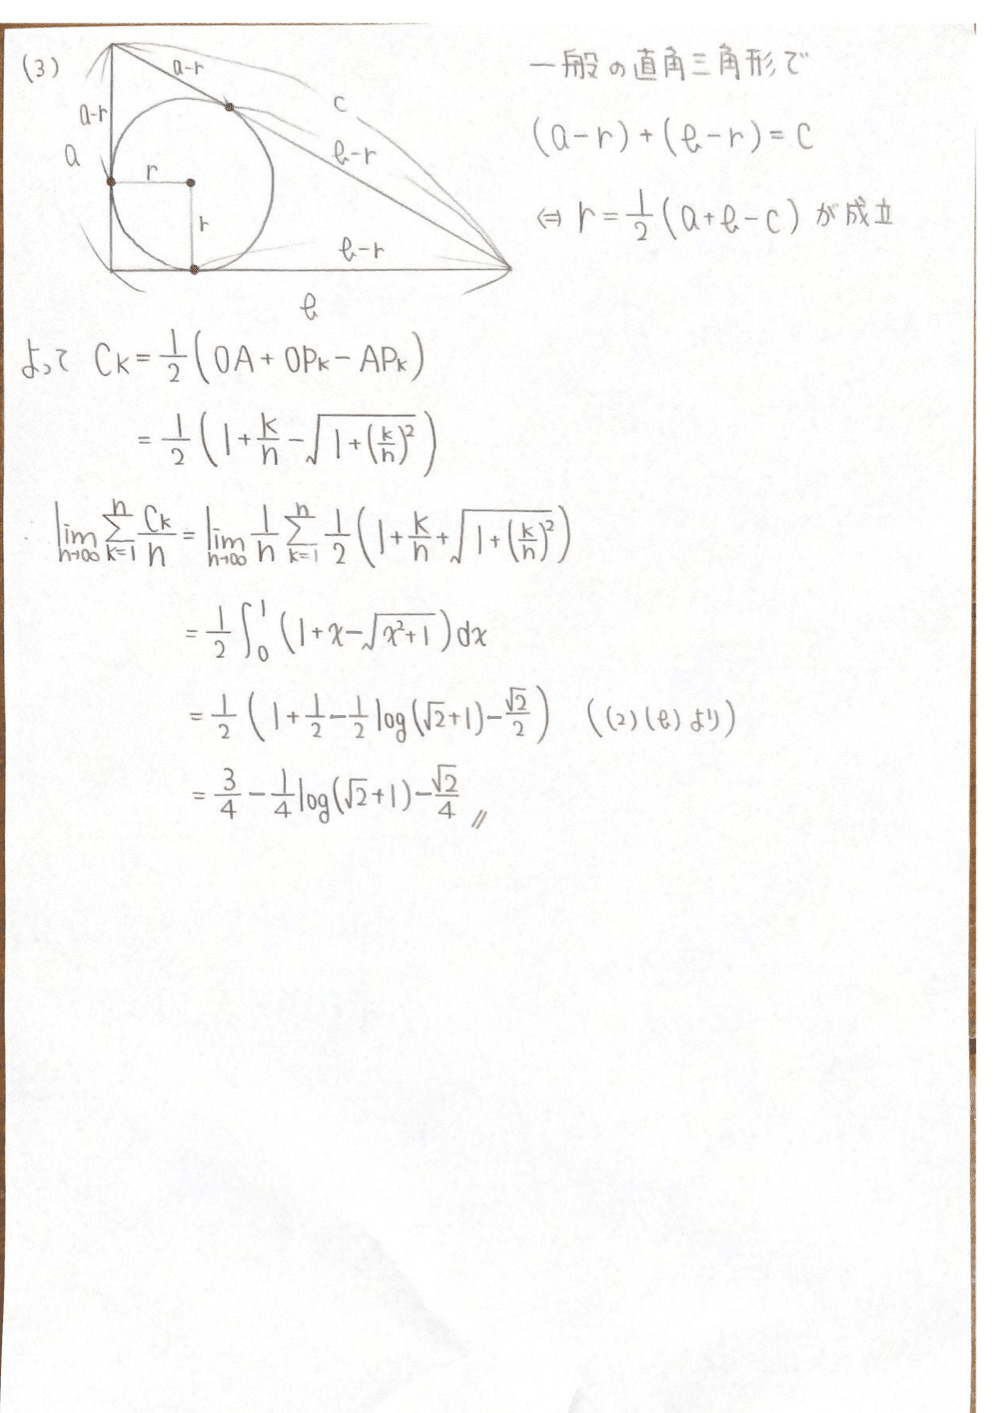 (3)
a-r
c
a-r
a
r
b-r
r
b-r
b
一般の直角三角形で
(a-r)+(b-r)=c
⇔ r=1/2(a+b-c) が成立
よって Ck=1/2(OA+OPk-APk)
=1/2(1+k/n-√(1+(k/n)²))
lim n→∞ Σ k=1 n Ck/n = lim n→∞ 1/n Σ k=1 n 1/2(1+k/n+√(1+(k/n)²))
=1/2∫₀¹(1+x-√(x²+1))dx
=1/2(1+1/2-1/2log(√2+1)-√2/2) ((2)(b)より)
=3/4-1/4log(√2+1)-√2/4 //